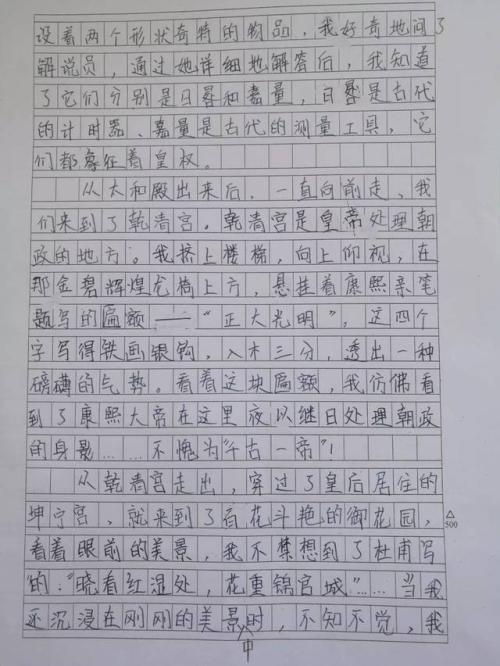 设着两个形状奇特的物品，我好奇地问了
解说员，通过她详细地解答后，我知道
了它们分别是日晷和嘉量，日晷是古代
的计时器、嘉量是古代的测量工具，它
们都象征着皇权。
从太和殿出来后，一直向前走、我
们来到了乾清宫。乾清宫是皇帝处理朝
政的地方。我挤上楼梯，向上仰视，在
那金碧辉煌龙椅上方，悬挂着康熙亲笔
题写的匾额——“正大光明”，这四个
字写得铁画银钩，入木三分，透出一种
磅礴的气势。看着这块匾额，我仿佛看
到了康熙大帝在这里夜以继日处理朝政
的身影……不愧为“千古一帝”！
从乾清宫走出，穿过了皇后居住的
坤宁宫、就来到了百花斗艳的御花园，
△
500
看着眼前的美景，我不禁想到了杜甫写
的：“晓看红湿处，花重锦官城”……当我
还沉浸在刚刚的美景时，不知不觉，我
中